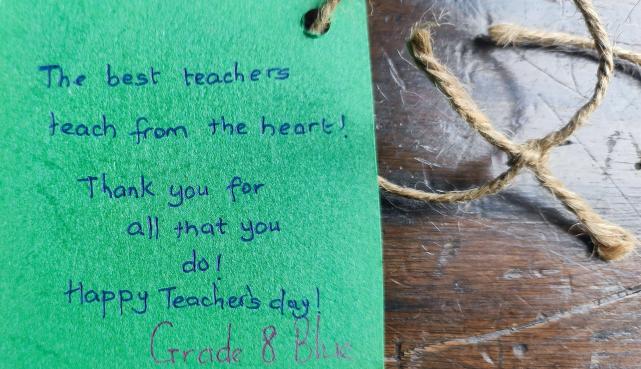 The best teachers
teach from the heart!
Thank you for
all that you
do!
Happy Teacher's day!
Grade 8 Blue